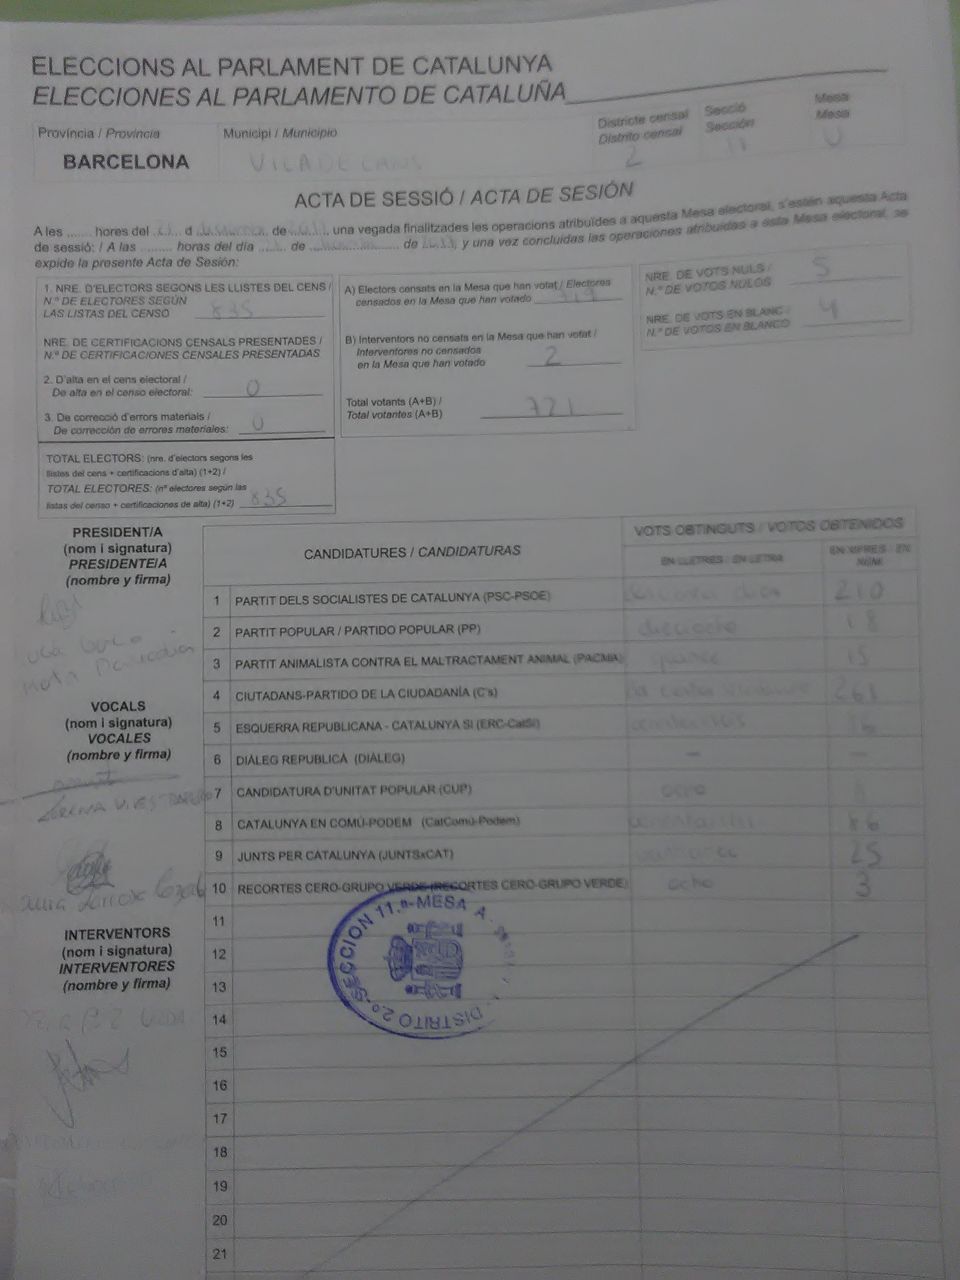 ELECCIONS AL PARLAMENT DE CATALUNYA
ELECCIONES AL PARLAMENTO DE CATALUÑA
Província / Provincia
BARCELONA
Municipi / Municipio
VILADECANS
Districte censal
Distrito censal
2
Secció
Sección
11
Mesa
Mesa
U
ACTA DE SESSIÓ / ACTA DE SESIÓN
A les ...... hores del 21 d de , una vegada finalitzades les operacions atribuïdes a aquesta Mesa electoral, s'estén aquesta Acta
de sessió: / A las ......... horas del día de de y una vez concluidas las operaciones atribuidas a esta Mesa electoral, se
expide la presente Acta de Sesión:
1. NRE. D'ELECTORS SEGONS LES LLISTES DEL CENS /
N.º DE ELECTORES SEGÚN
LAS LISTAS DEL CENSO 835
NRE. DE CERTIFICACIONS CENSALS PRESENTADES /
N.º DE CERTIFICACIONES CENSALES PRESENTADAS
2. D'alta en el cens electoral /
De alta en el censo electoral: 0
3. De correcció d'errors materials /
De corrección de errores materiales: 0
TOTAL ELECTORS: (nre. d'electors segons les
llistes del cens + certificacions d'alta) (1+2) /
TOTAL ELECTORES: (nº electores según las
listas del censo + certificaciones de alta) (1+2) 835
A) Electors censats en la Mesa que han votat / Electores
censados en la Mesa que han votado 719
B) Interventors no censats en la Mesa que han votat /
Interventores no censados
en la Mesa que han votado 2
Total votants (A+B) /
Total votantes (A+B) 721
NRE. DE VOTS NULS /
N.º DE VOTOS NULOS 5
NRE. DE VOTS EN BLANC /
N.º DE VOTOS EN BLANCO 4
PRESIDENT/A
(nom i signatura)
PRESIDENTE/A
(nombre y firma)
VOCALS
(nom i signatura)
VOCALES
(nombre y firma)
INTERVENTORS
(nom i signatura)
INTERVENTORES
(nombre y firma)
CANDIDATURES / CANDIDATURAS
VOTS OBTINGUTS / VOTOS OBTENIDOS
EN LLETRES / EN LETRA
EN XIFRES / EN NÚM.
1 PARTIT DELS SOCIALISTES DE CATALUNYA (PSC-PSOE) 210
2 PARTIT POPULAR / PARTIDO POPULAR (PP) dieciocho 18
3 PARTIT ANIMALISTA CONTRA EL MALTRACTAMENT ANIMAL (PACMA) quince 15
4 CIUTADANS-PARTIDO DE LA CIUDADANÍA (C's)
5 ESQUERRA REPUBLICANA - CATALUNYA SÍ (ERC-CatSí)
6 DIÀLEG REPUBLICÀ (DIÀLEG) - -
7 CANDIDATURA D'UNITAT POPULAR (CUP) ocho
8 CATALUNYA EN COMÚ-PODEM (CatComú-Podem) 86
9 JUNTS PER CATALUNYA (JUNTSxCAT) 25
10 RECORTES CERO-GRUPO VERDE (RECORTES CERO-GRUPO VERDE) 3
11
12
13
14
15
16
17
18
19
20
21
DISTRITO 2.º-SECCION 11.ª-MESA A